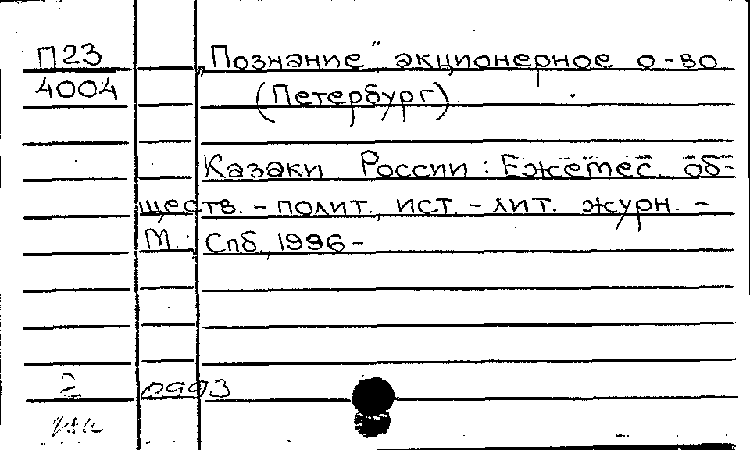 П23 „Познание" акционерное о-во
4004 (Петербург)
Казаки России: Ежемес. об-
ществ. - полит., ист. - лит. журн. -
М.: Спб, 1996-
2